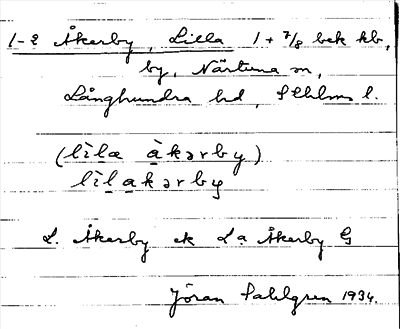 1-2 Åkerby, Lilla 1 + 7/8 bek kb,
by, Närtuna sn,
Långhundra hd, Sthlms l.
(lìlạ à̀kərby)
lìlạkərby
L. Åkerby ek La Åkerby G
Jöran Sahlgren 1934.